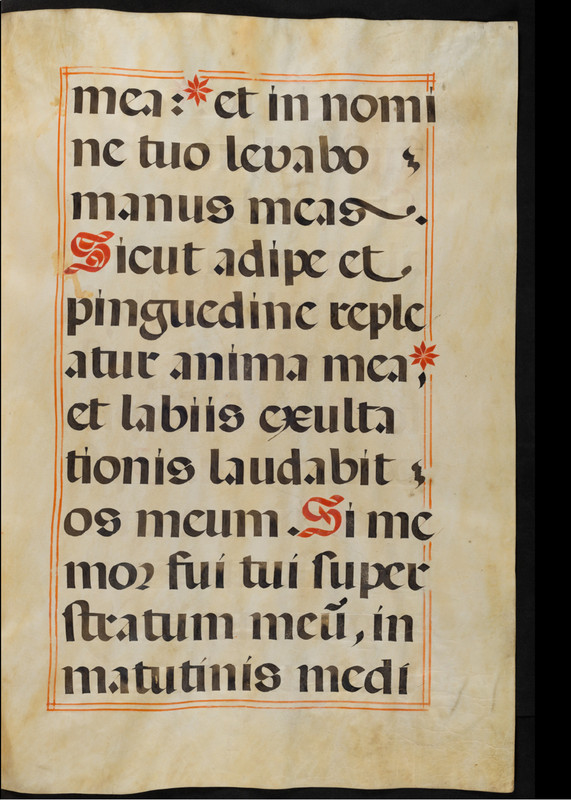 mea :* et in nomi
ne tuo levabo ;
manus meas.
Sicut adipe et
pinguedine reple
atur anima mea*,
et labiis exulta
tionis laudabit ;
os meum. Si me
moꝛ fui tui ſuper
ſtratum meū, in
matutinis medi